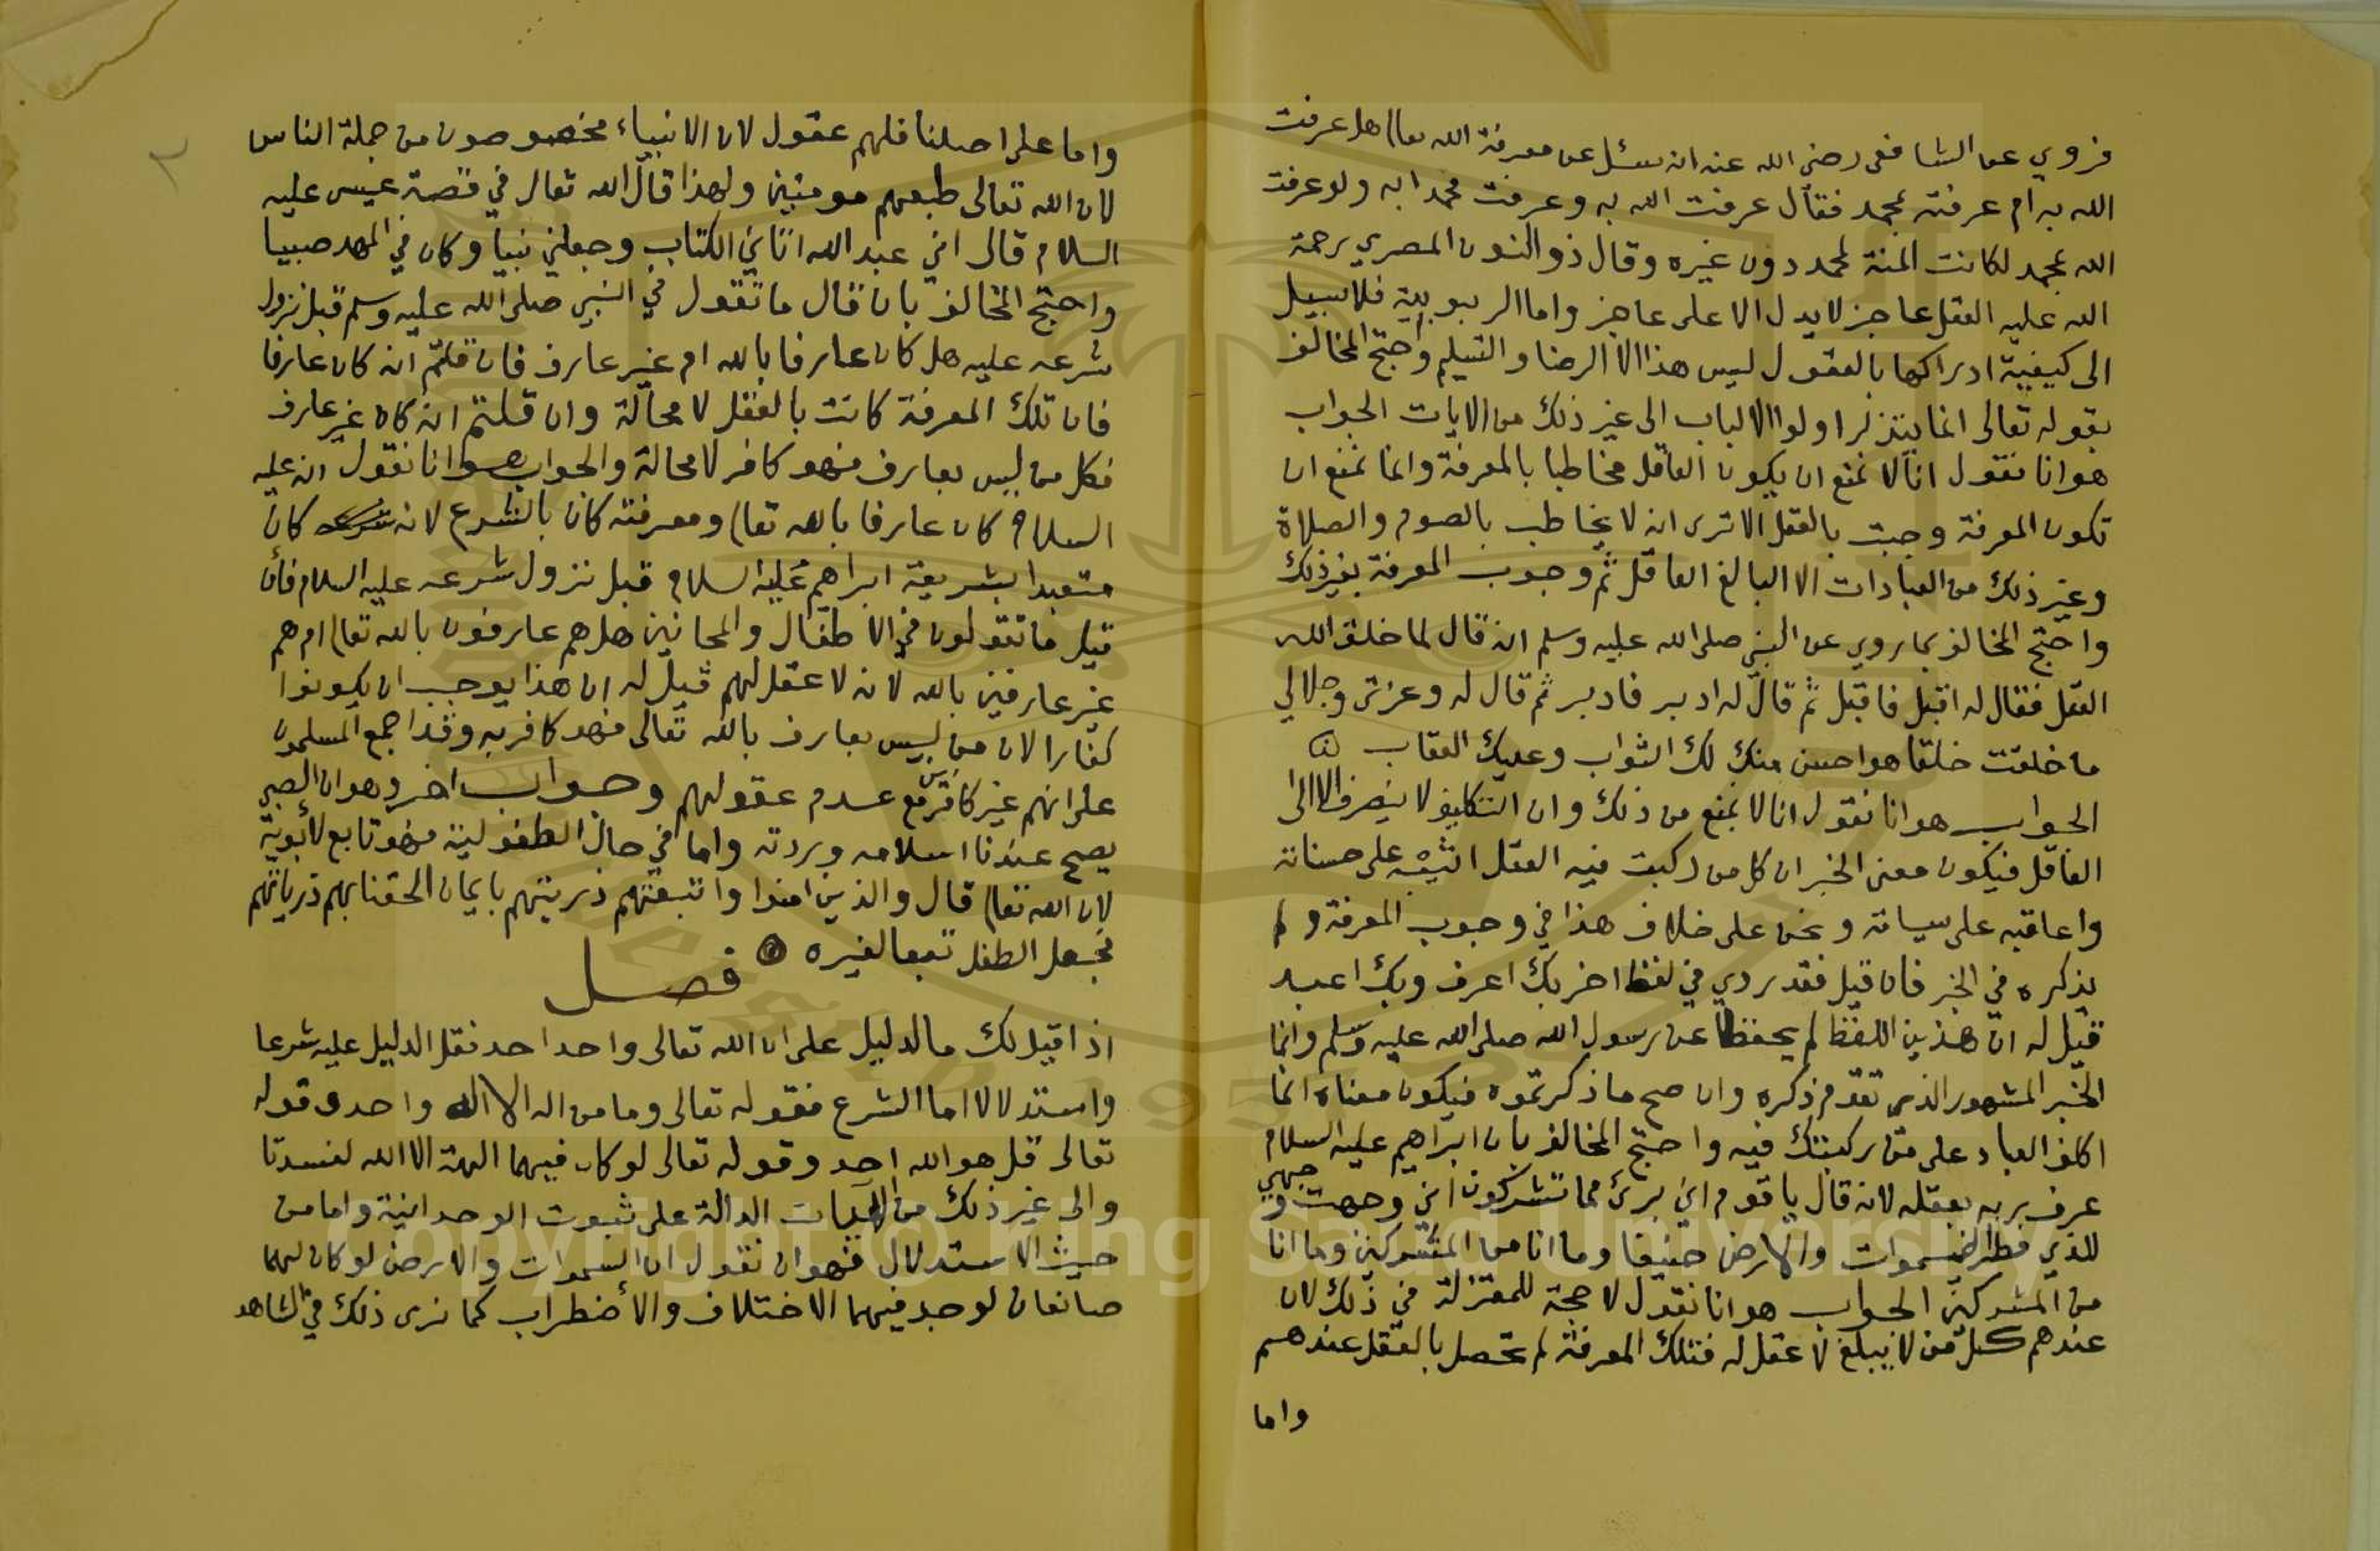 فروي عن الشافعي رضي الله عنه انه سئل عن معرفة الله تعالى هل عرفت
الله به ام عرفته بمحمد فقال عرفت الله به وعرفت محمدا به ولو عرفت
الله بمحمد لكانت المنة لمحمد دون غيره وقال ذو النون المصري رحمة
الله عليه العقل عاجز لا يدل الا على عاجز واما الربوبية فلا سبيل
الى كيفية ادراكها بالعقول ليس هذا الا الرضا والتسليم واحتج المخالف
بقوله تعالى انما يتذكر اولوا الالباب الى غير ذلك من الايات الجواب
هو انا نقول انا لا نمنع ان يكون العاقل مخاطبا بالمعرفة وانما نمنع ان
تكون المعرفة وجبت بالعقل الا ترى انه لا يخاطب بالصوم والصلاة
وغير ذلك من العبادات الا البالغ العاقل ثم وجوب المعرفة بغير ذلك
واحتج المخالف بما روي عن النبي صلى الله عليه وسلم انه قال لما خلق الله
العقل فقال له اقبل فاقبل ثم قال له ادبر فادبر ثم قال له وعزتي وجلالي
ما خلقت خلقا هو احسن منك لك الثواب وعليك العقاب
الجواب هو انا نقول انا لا نمنع من ذلك وان التكليف لا ينصرف الا الى
العاقل فيكون معنى الخبر ان كل من ركبت فيه العقل اثيبه على حسناته
واعاقبه على سياته ونحن على خلاف هذا في وجوب المعرفة ولم
يذكره في الخبر فان قيل فقد روي في لفظ اخر بك اعرف وبك اعبد
قيل له ان هذين اللفظ لم يحفظا عن رسول الله صلى الله عليه وسلم وانما
الخبر المشهور الذي تقدم ذكره وان صح ما ذكرتموه فيكون معناه انما
اكلف العباد على من ركبتك فيه واحتج المخالف بان ابراهيم عليه السلام
عرف ربه بعقله لانه قال يا قوم اني برئ مما تشركون اني وجهت وجهي
للذي فطر السموات والارض حنيفا وما انا من المشركين وما انا
من المشركين الجواب هو انا نقول لا حجة للمعتزلة في ذلك لان
عندهم كل من لا يبلغ لا عقل له فتلك المعرفة لم تحصل بالعقل عندهم
واما
واما على اصلنا فلهم عقول لان الانبياء مخصوصون من جملة الناس
لان الله تعالى طبعهم مومنين ولهذا قال الله تعالى في قصة عيسى عليه
السلام قال اني عبد الله اتاني الكتاب وجعلني نبيا وكان في المهد صبيا
واحتج المخالف بان قال ما تقول في النبي صلى الله عليه وسلم قبل نزول
شرعه عليه هل كان عارفا بالله ام غير عارف فان قلتم انه كان عارفا
فان تلك المعرفة كانت بالعقل لا محالة وان قلتم انه كان غير عارف
فكل من ليس بعارف فهو كافر لا محالة والجواب هو انا نقول انه عليه
السلام كان عارفا بالله تعالى ومعرفته كان بالشرع لانه كان
متعبدا بشريعة ابراهيم عليه السلام قبل نزول شرعه عليه السلام فأن
قيل ما تقولون في الاطفال والمجانين هل هم عارفون بالله تعالى ام هم
غير عارفين بالله لانه لا عقل لهم قيل له ان هذا يوجب ان يكونوا
كفارا لان من ليس بعارف بالله تعالى فهو كافر به وقد اجمع المسلمون
على انهم غير كافرين مع عدم عقولهم وجواب اخر وهو ان الصبي
يصح عندنا اسلامه وردته واما في حال الطفولية فهو تابع لأبويه
لان الله تعالى قال والذين امنوا واتبعتهم ذريتهم بايمان الحقنا بهم ذرياتهم
فجعل الطفل تبعا لغيره
فصل
اذا قيل لك ما الدليل على ان الله تعالى واحد احد فقل الدليل عليه شرعا
واستدلالا اما الشرع فقوله تعالى وما من اله الا اله واحد وقوله
تعالى قل هو الله احد وقوله تعالى لو كان فيهما الهة الا الله لفسدتا
والى غير ذلك من الايات الدالة على ثبوت الوحدانية واما من
حيث الاستدلال فهو ان نقول ان السموات والارض لو كان لهما
صانعان لوجد فيهما الاختلاف والأضطراب كما نرى ذلك في الشاهد
Copyright © King Saud University